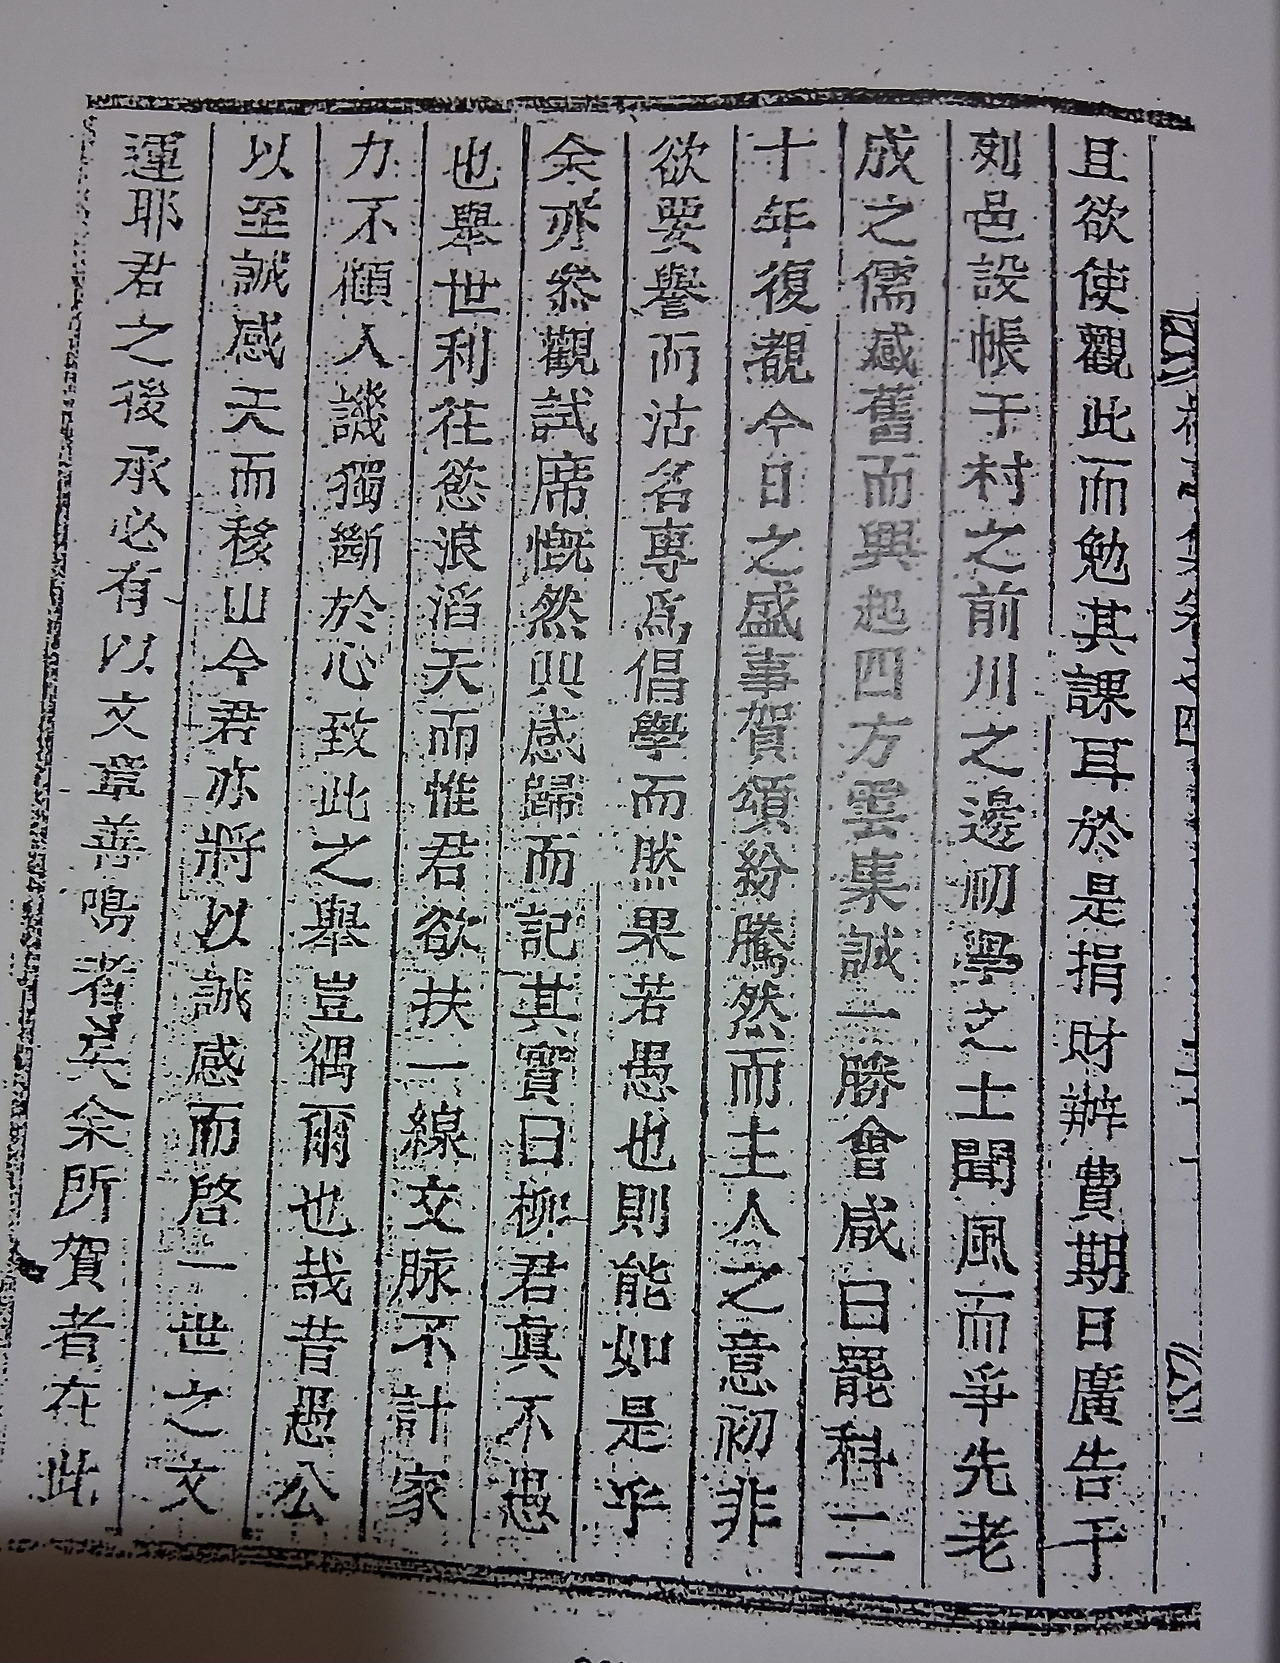 且欲使觀此而勉其課耳於是捐財辦費期日廣告于
列邑設帳于村之前川之邊初學之士聞風而爭先老
成之儒感舊而興起四方雲集誠一勝會咸曰罷科二
十年復覩今日之盛事賀頌紛騰然而主人之意初非
欲要譽而沽名專爲倡學而然果若愚也則能如是乎
余亦叅觀試席慨然興感歸而記其實曰柳君眞不愚
也擧世利在慾浪滔天而惟君欲扶一線文脉不計家
力不顧人譏獨斷於心致此之擧豈偶爾也哉昔愚公
以至誠感天而移山今君亦將以誠感而啓一世之文
運耶君之後承必有以文章善鳴者矣余所賀者在此